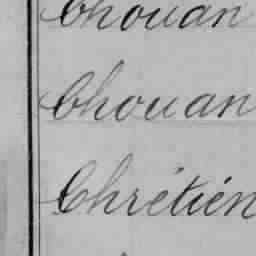 Chouan
Chouan
Chrétien